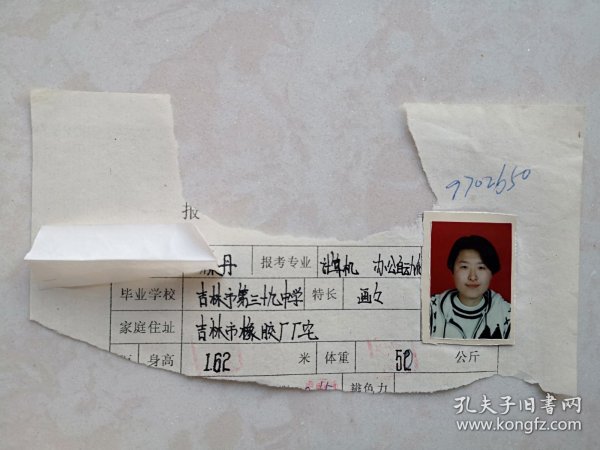 9702650
报
丹 报考专业 计算机 办公自动化
毕业学校 吉林市第三十九中学 特长 画画
家庭住址 吉林市橡胶厂厂宅
身高 162 米 体重 52 公斤
辨色力
孔夫子旧书网
www.kongfz.com